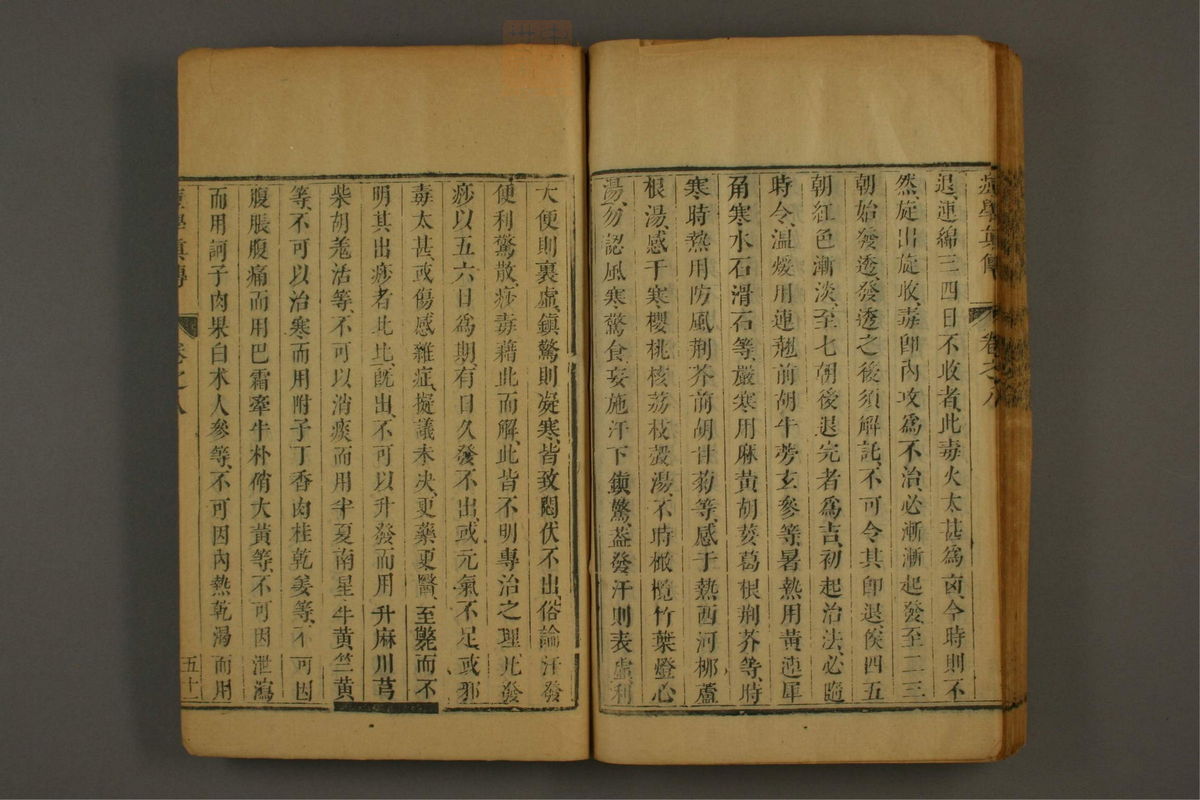 痘學真傳 卷之八
退、連綿三四日不收者、此毒火太甚爲凶、今時則不
然、旋出旋收、毒卽內攻爲不治、必漸漸起發至二三
朝始發透、發透之後須解託、不可令其卽退、俟四五
朝紅色漸淡、至七朝後退完者爲吉、初起治法、必隨
時令、溫煖用連翹前胡牛蒡玄參等、暑熱用黃連犀
角寒水石滑石等、嚴寒用麻黃胡荽葛根荆芥等、時
寒時熱用防風荆芥前胡甘菊等、感于熱西河栁蘆
根湯、感于寒櫻桃核荔枝殼湯、不時橄欖竹葉燈心
湯、勿認風寒驚食、妄施汗下鎮驚、葢發汗則表虛、利
大便則裏虛、鎮驚則凝寒、皆致悶伏不出、俗論汗發
便利驚散、痧毒藉此而解、此皆不明專治之理、凡發
痧以五六日爲期、有日久發不出、或元氣不足、或邪
毒太甚、或傷感雜症、擬議未决、更藥更醫、至斃而不
明其出痧者比比、旣出、不可以升發而用升麻川芎
柴胡羗活等、不可以消痰而用半夏南星牛黃竺黃
等、不可以治寒而用附子丁香肉桂乾姜等、不可因
腹脹腹痛而用巴霜牽牛朴硝大黃等、不可因泄瀉
而用訶子肉果白术人參等、不可因內熱乾渴而用
痘學真傳 卷之八 五十